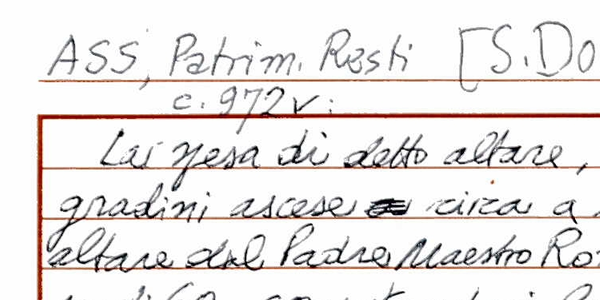 ASS, Patrim. Resti [S. Do
c. 972v:
La spesa di detto altare,
gradini ascese circa a
altare del Padre Maestro Ro